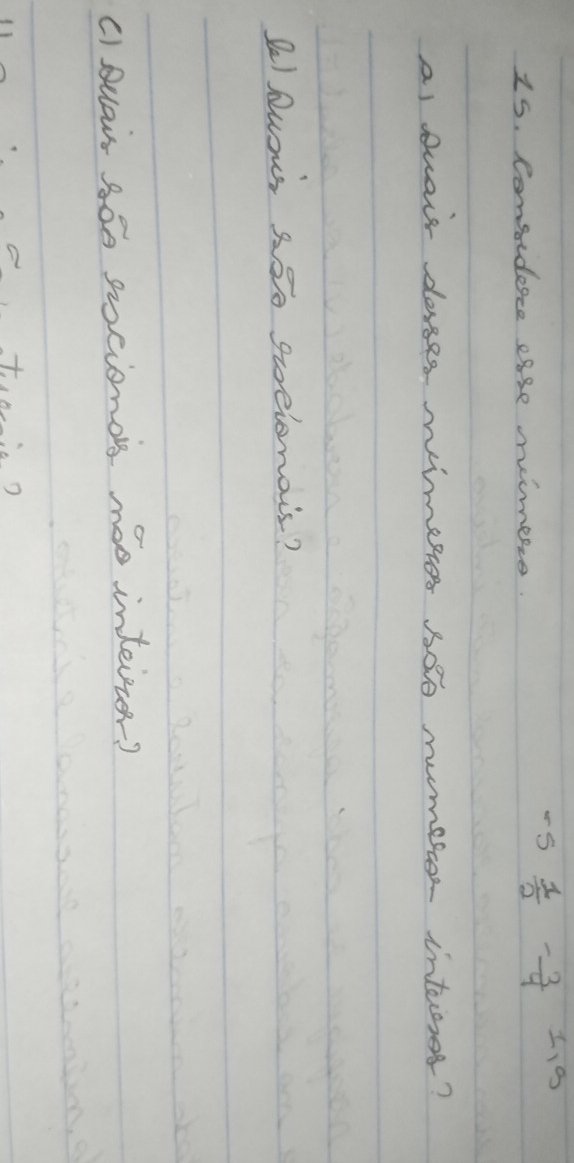 15. Considere esse número. -5 1/2 -3/4 1,5
a) Quais desses números são numeros inteiros?
b) Quais são racionais?
c) Quais são racionais não inteiros?